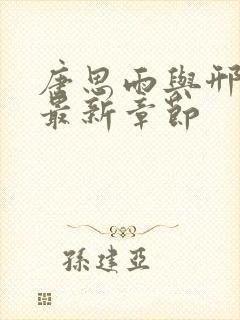 唐思雨與邢
最新章節
孫建亞